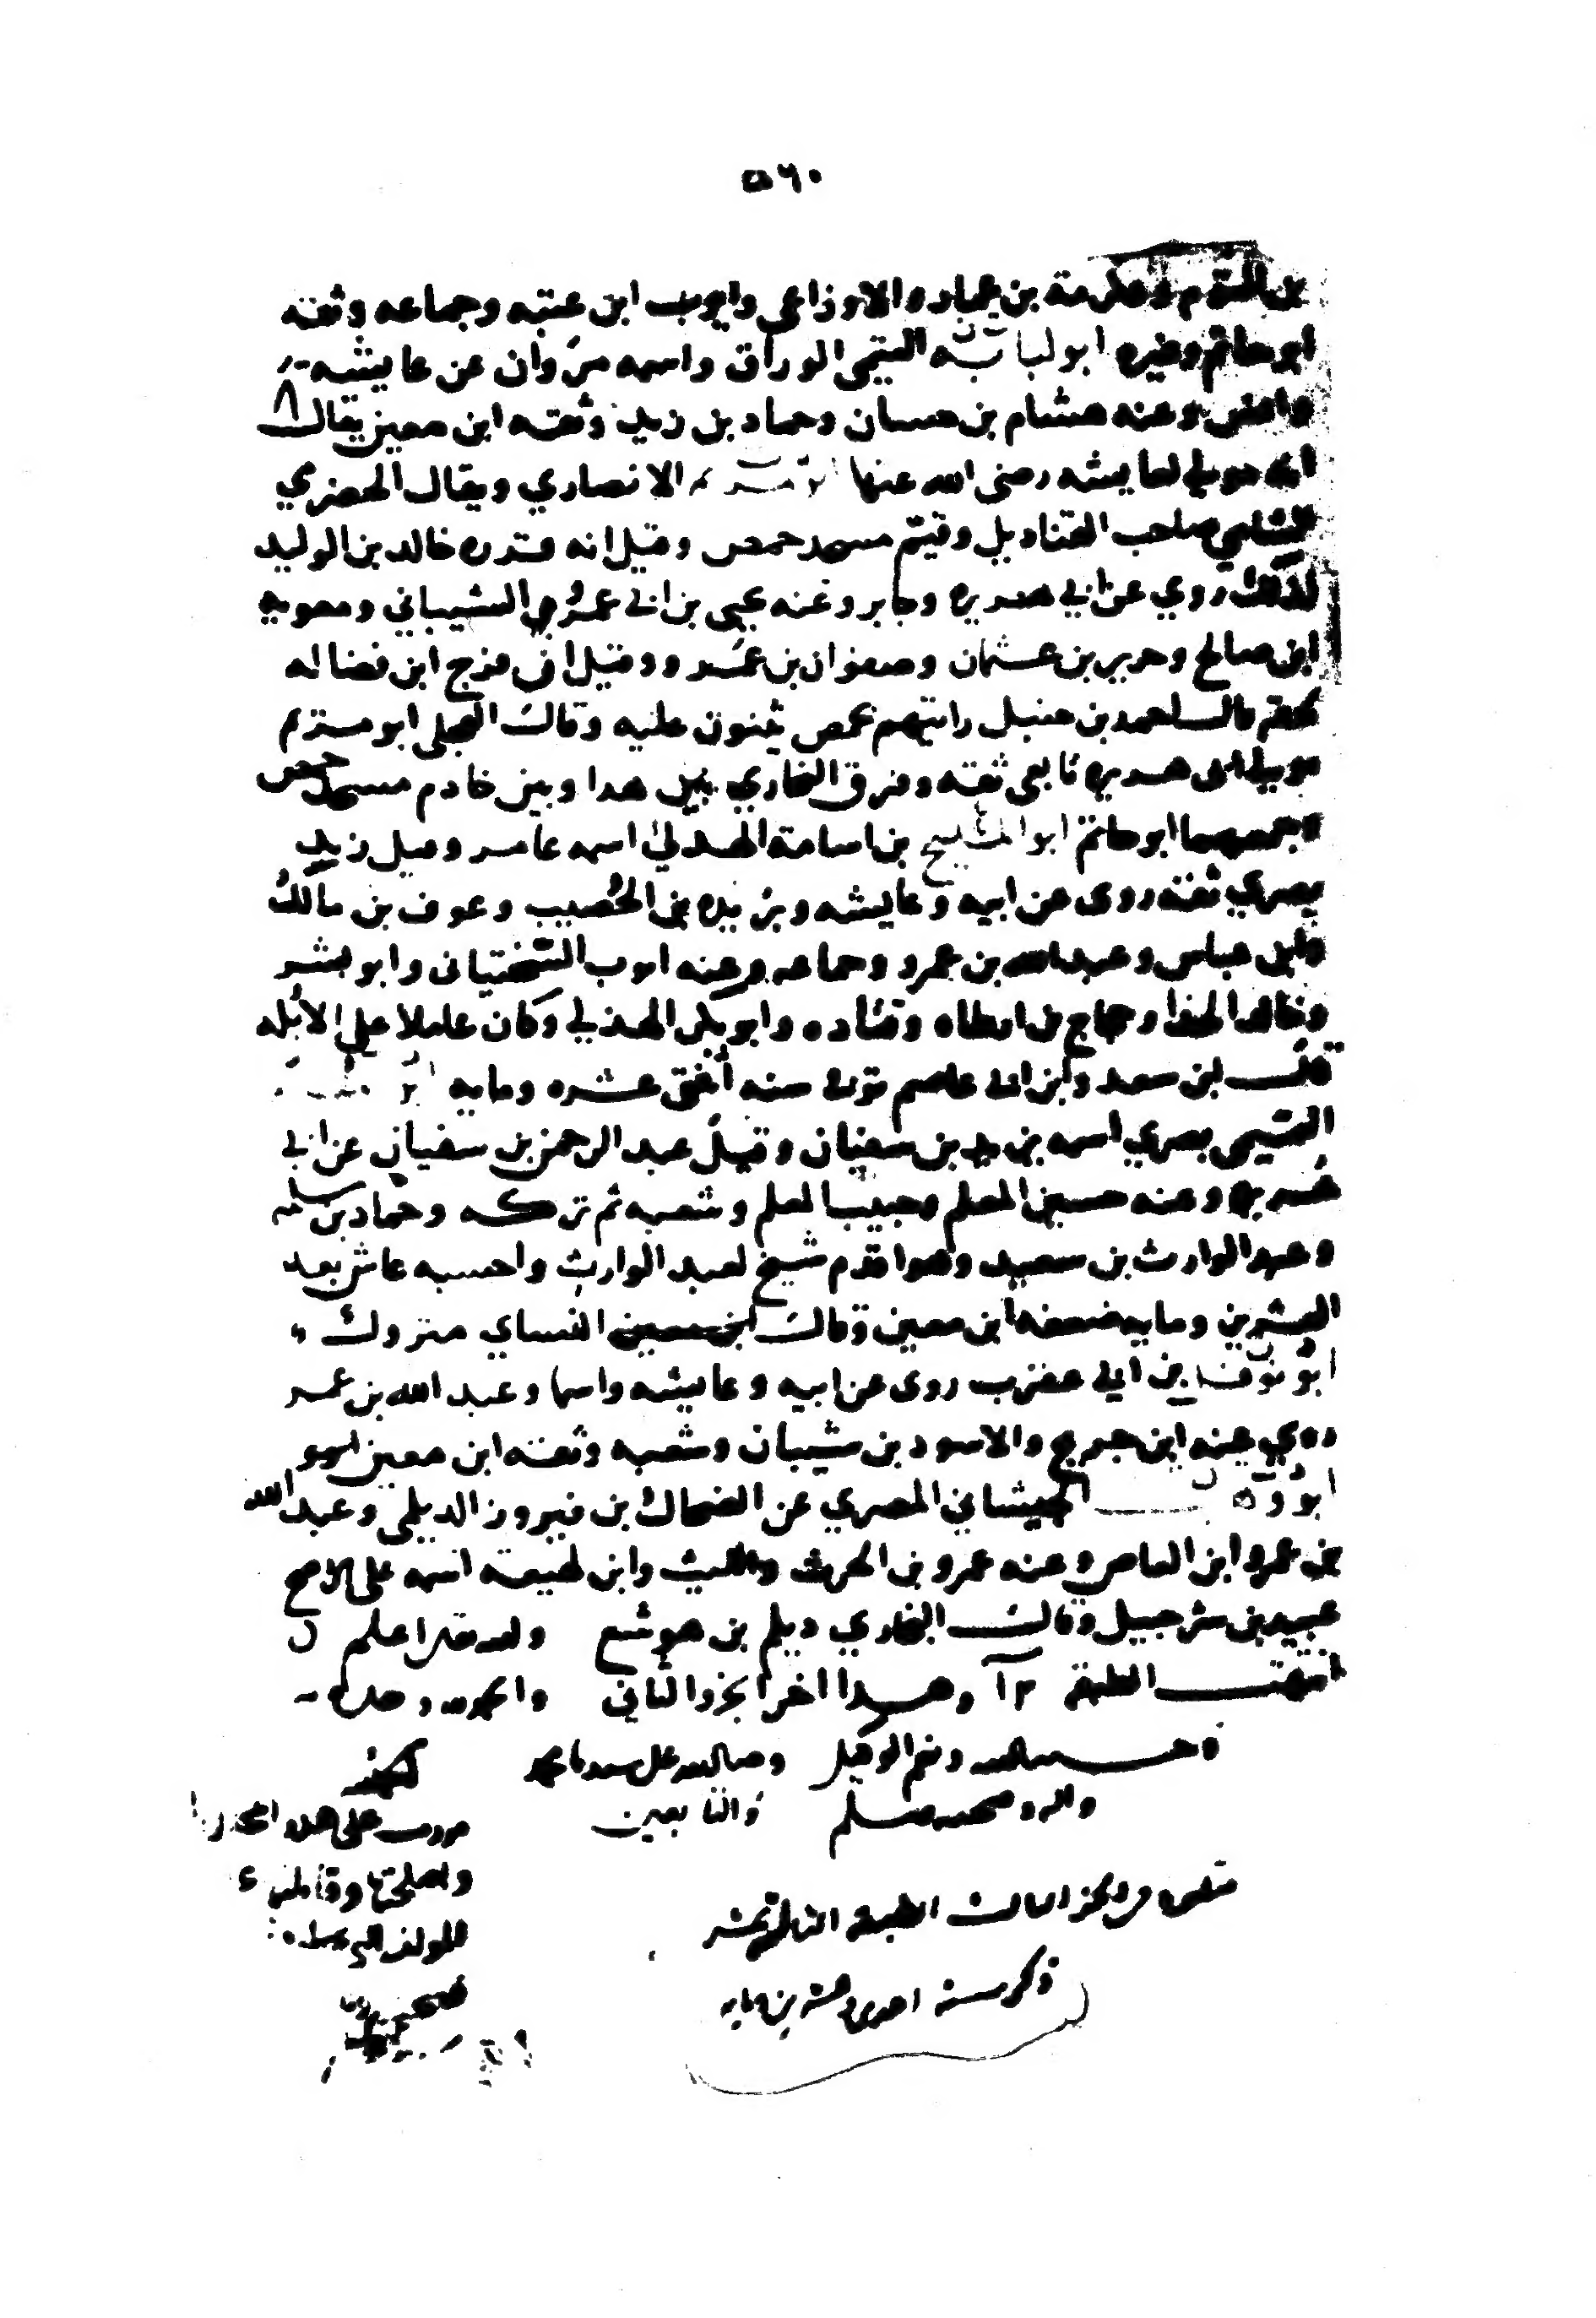 ٥٦٠
وعكرمة بن عمار والاوزاعي وايوب ابن عتبه وجماعه وثقه
ابو حاتم وغيره ابو لبابه التيمي الوراق واسمه مروان عن عايشه
وانس وعنه هشام بن حسان وحماد بن زيد وثقه ابن معين يقال
انه مولى لعايشه رضى الله عنها الانصاري ويقال الحضرمي
الشامي صاحب القناديل وقيّم مسجد حمص وقيل انه قدره خالد بن الوليد
لذلك روي عن ابي هريره وجابر وعنه يحيى بن ابى عمرو الشيباني ومعويه
ابن صالح وحريز بن عثمان وصفوان بن عمرو وقيل ان فرج ابن فضاله
لحقه قال احمد بن حنبل رايتهم بحمص يثنون عليه وقال العجلى ابو مريم
مولى ابى هريره تابعى ثقه وفرق البخاري بين هدا وبين خادم مسجد حمص
وجمعهما ابو حاتم ابو المليح بن اسامة الهدلي اسمه عامر وقيل زيد
بصري ثقه روى عن ابيه وعايشه وبريده بن الحُصيب وعوف بن مالك
وابن عباس وعبد الله بن عمرو وجماعه وعنه ايوب السختيانى وابو بشر
وخالد الحذا وحجاج بن ارطاه وقتاده وابو بكر الهذلي وكان عاملا على الاُبُله
قال ابن سعد وابن ابى عاصم توفى سنه اثنتى عشره ومايه
التميمى بصري اسمه يزيد بن سفيان وقيل عبد الرحمن بن سفيان عن ابي
هريره وعنه حسين المعلم وحبيب المعلم وشعبه ثم تركه وحماد بن سلمه
وعبد الوارث بن سعيد وهو اقدم شيخ لعبد الوارث واحسبه عاش بعد
العشرين ومايه ضعفه ابن معين وقال ابن معين النساي متروك
ابو نوفل بن ابي عقرب روى عن ابيه وعايشه واسما وعبد الله بن عمر
روي عنه ابن جريج والاسود بن شيبان وشعبه وثقه ابن معين
ابو وهب الجيشاني المصري عن الضحاك بن فيروز الديلمى وعبد الله
بن عمرو ابن العاص وعنه عمرو بن الحرث والليث وابن لهيعه اسمه على الاصح
عبيد بن شرحبيل وقال البخاري ديلم بن هوشع والله اعلم
انتهت الطبقة ١٢ وهدا اخر الجزو الثاني والحمد لله وحده
وحسبنا الله ونعم الوكيل وصلى الله على سيدنا محمد
واله وصحبه وسلم والتابعين
مررت على هذا
واصلحتها وقابلتها
للمولف
يتلوه في الجز الثالث الطبقة الثالثة عشر
ذكر سنة احدى وعشرين ومايه